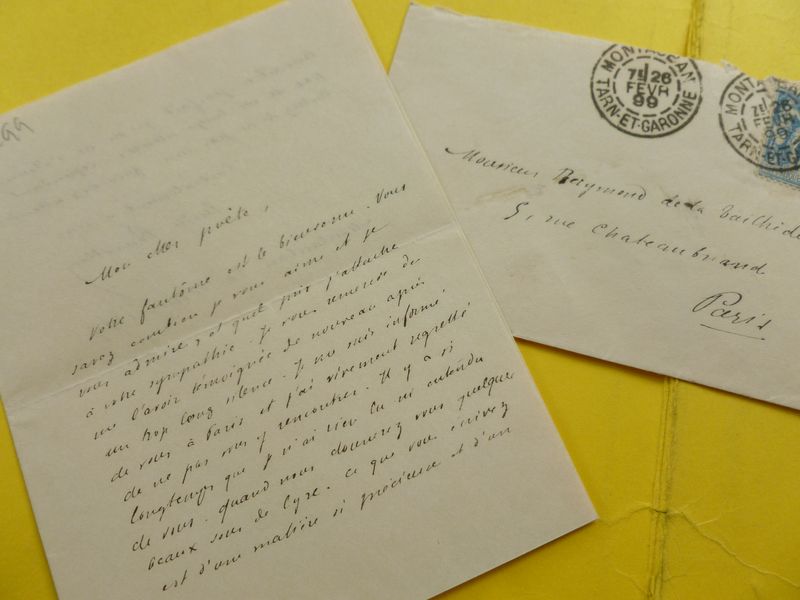 99
Mon cher poète,
Votre fantôme est le bienvenu. Vous
savez combien je vous aime et je
vous admire, et quel prix j'attache
à votre sympathie. Je vous remercie de
me l'avoir témoignée de nouveau après
un trop long silence. Je me suis informé
de vous à Paris et j'ai vivement regretté
de ne pas vous y rencontrer. Il y a si
longtemps que je n'ai rien lu ni entendu
de vous. Quand nous donnerez vous quelque
beaux sons de lyre. Ce que vous écrivez
est d'une matière si précieuse et d'un
MONTASTRUC
7E 26
FEVR
99
TARN-ET-GARONNE
MONT
7E 26
99
TARN-ET-GA
Monsieur Raymond de la Tailhède
5, rue Chateaubriand
Paris